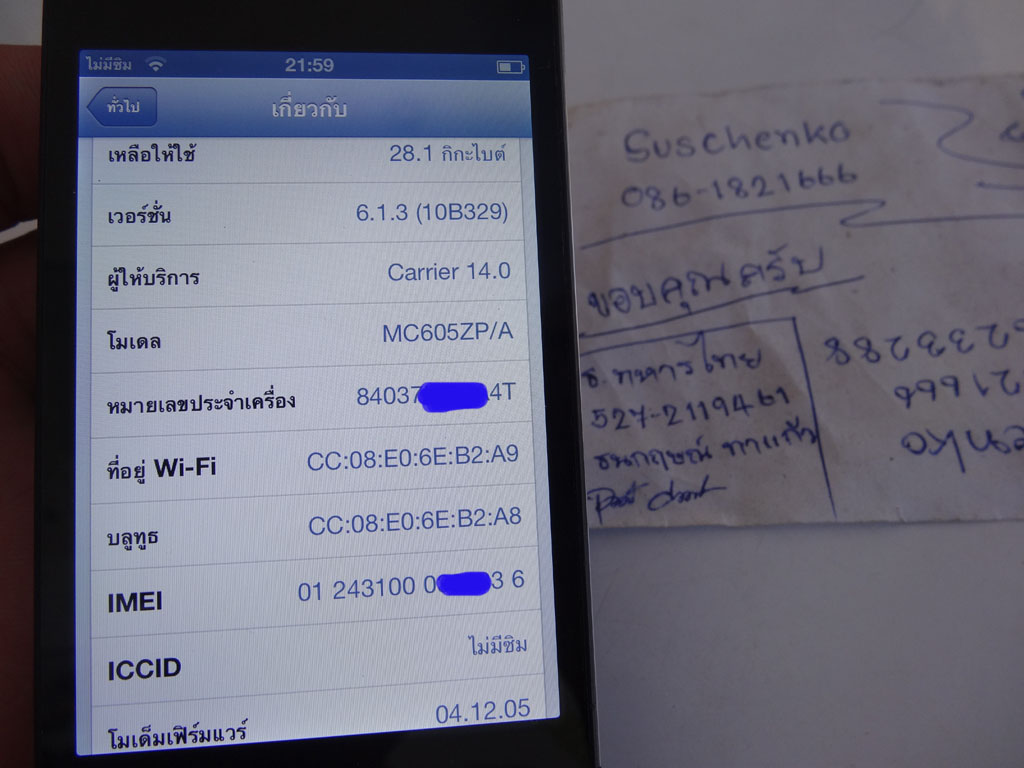 ไม่มีซิม 21:59
ทั่วไป เกี่ยวกับ
เหลือให้ใช้ 28.1 กิกะไบต์
เวอร์ชั่น 6.1.3 (10B329)
ผู้ให้บริการ Carrier 14.0
โมเดล MC605ZP/A
หมายเลขประจำเครื่อง 84037 4T
ที่อยู่ Wi-Fi CC:08:E0:6E:B2:A9
บลูทูธ CC:08:E0:6E:B2:A8
IMEI 01 243100 0 3 6
ICCID ไม่มีซิม
โมเด็มเฟิร์มแวร์ 04.12.05
Suschenko
086-1821666
ขอบคุณครับ
ธ.ทหารไทย
527-2119461
ธนกฤษณ์ ทาแก้ว